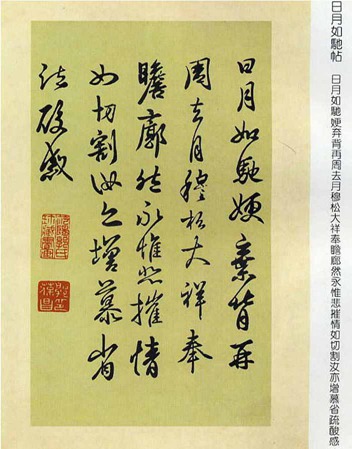 日月如馳帖
日月如馳㛐弃背再周去月穆松大祥奉瞻廓然永惟悲摧情如切割汝亦增慕省疏酸感
日月如馳㛐棄背再
周去月穆松大祥奉
瞻廓然永惟悲摧情
如切割汝亦增慕省
疏酸感